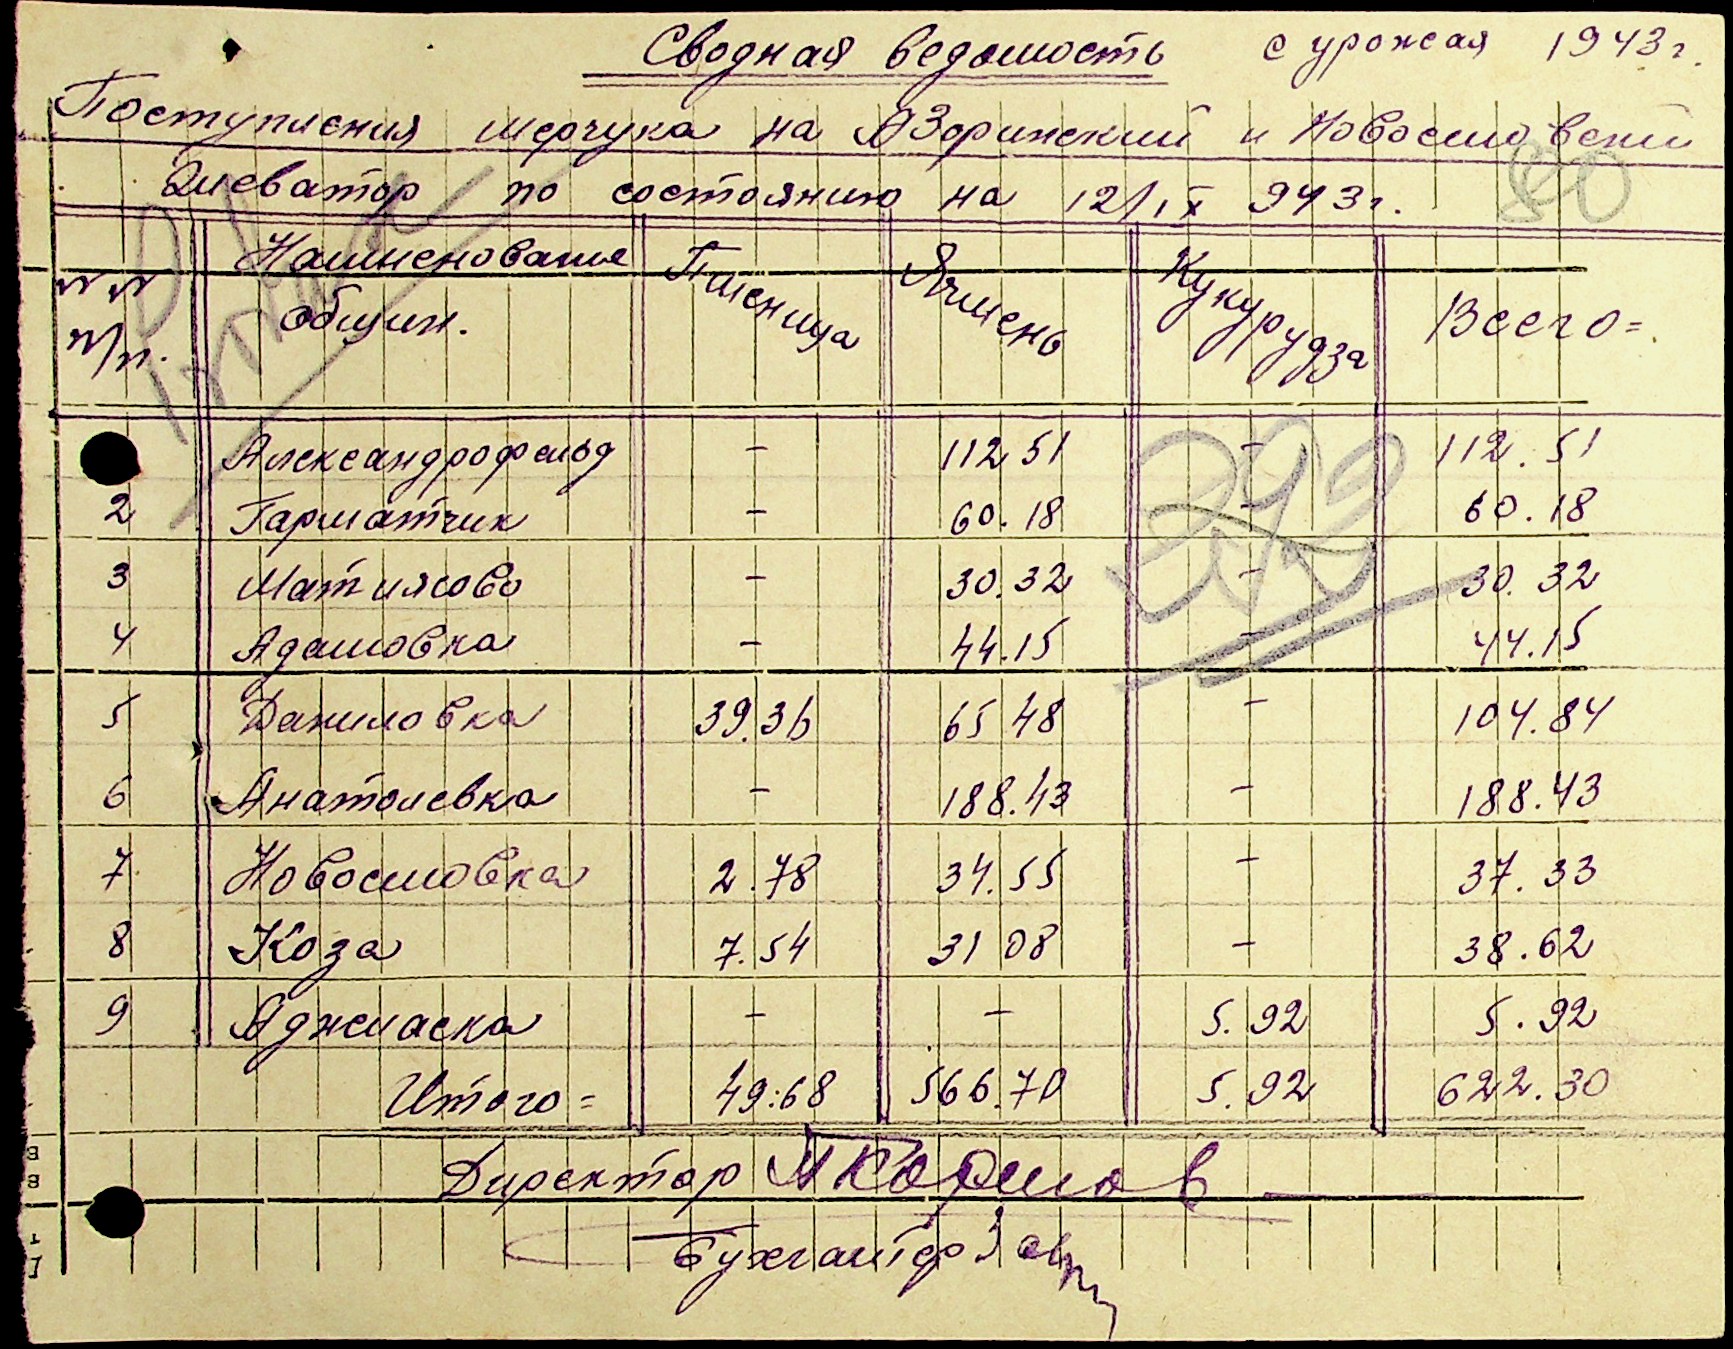 Сводная ведомость с урожая 1943 г.
Поступления мерчука на АЗоринский и Новоселовский
Элеватор по состоянию на 12/IX 943 г.
80
№ № п/п. Наименование общин. Пшеница Ячмень Кукурудза Всего =
Александрофельд – 112 51 – 112. 51
2 Гарматчик – 60. 18 – 60. 18
3 Матиясово – 30. 32 – 30. 32
4 Адамовка – 44. 15 – 44. 15
5 Даниловка 39. 36 65 48 – 104. 84
6 Анатолевка – 188. 43 – 188. 43
7 Новоселовка 2. 78 34. 55 – 37. 33
8 Коза 7. 54 31 08 – 38. 62
9 Аджиаска – – 5. 92 5. 92
Итого = 49:68 566. 70 5. 92 622. 30
Директор
Бухгалтер